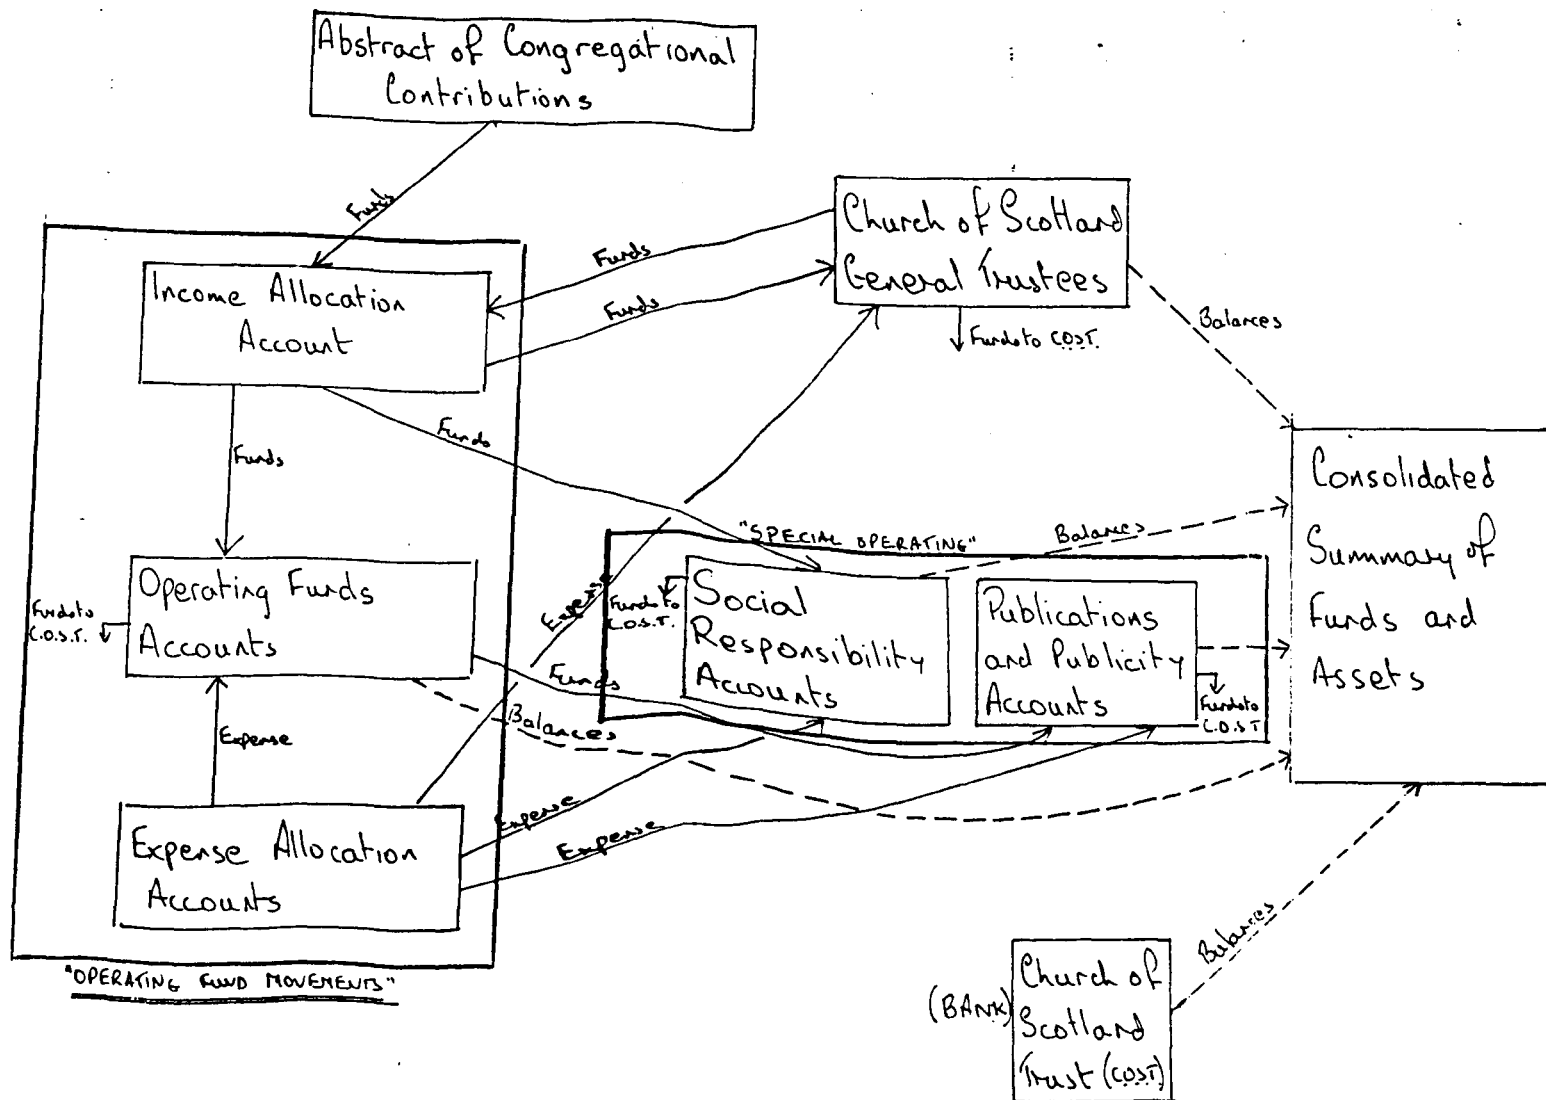 Abstract of Congregational
Contributions
Funds
Church of Scotland
General Trustees
Funds
Funds
Funds to C.O.S.T.
Balances
Income Allocation
Account
Funds
Funds
Consolidated
Summary of
Funds and
Assets
"SPECIAL OPERATING"
Balances
Operating Funds
Accounts
Funds to
C.O.S.T.
Expense
Funds to
C.O.S.T.
Social
Responsibility
Accounts
Publications
and Publicity
Accounts
Funds to
C.O.S.T
Funds
Balances
Expense
Expense Allocation
Accounts
Expense
Expense
Balances
"OPERATING FUND MOVEMENTS"
(BANK)
Church of
Scotland
Trust (C.O.S.T)